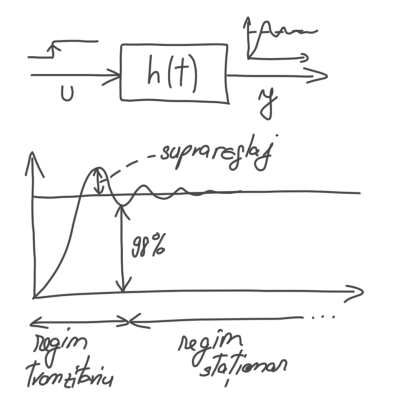 h(t)
u
y
suprareglaj
98%
regim
tranzitoriu
regim
staționar
...